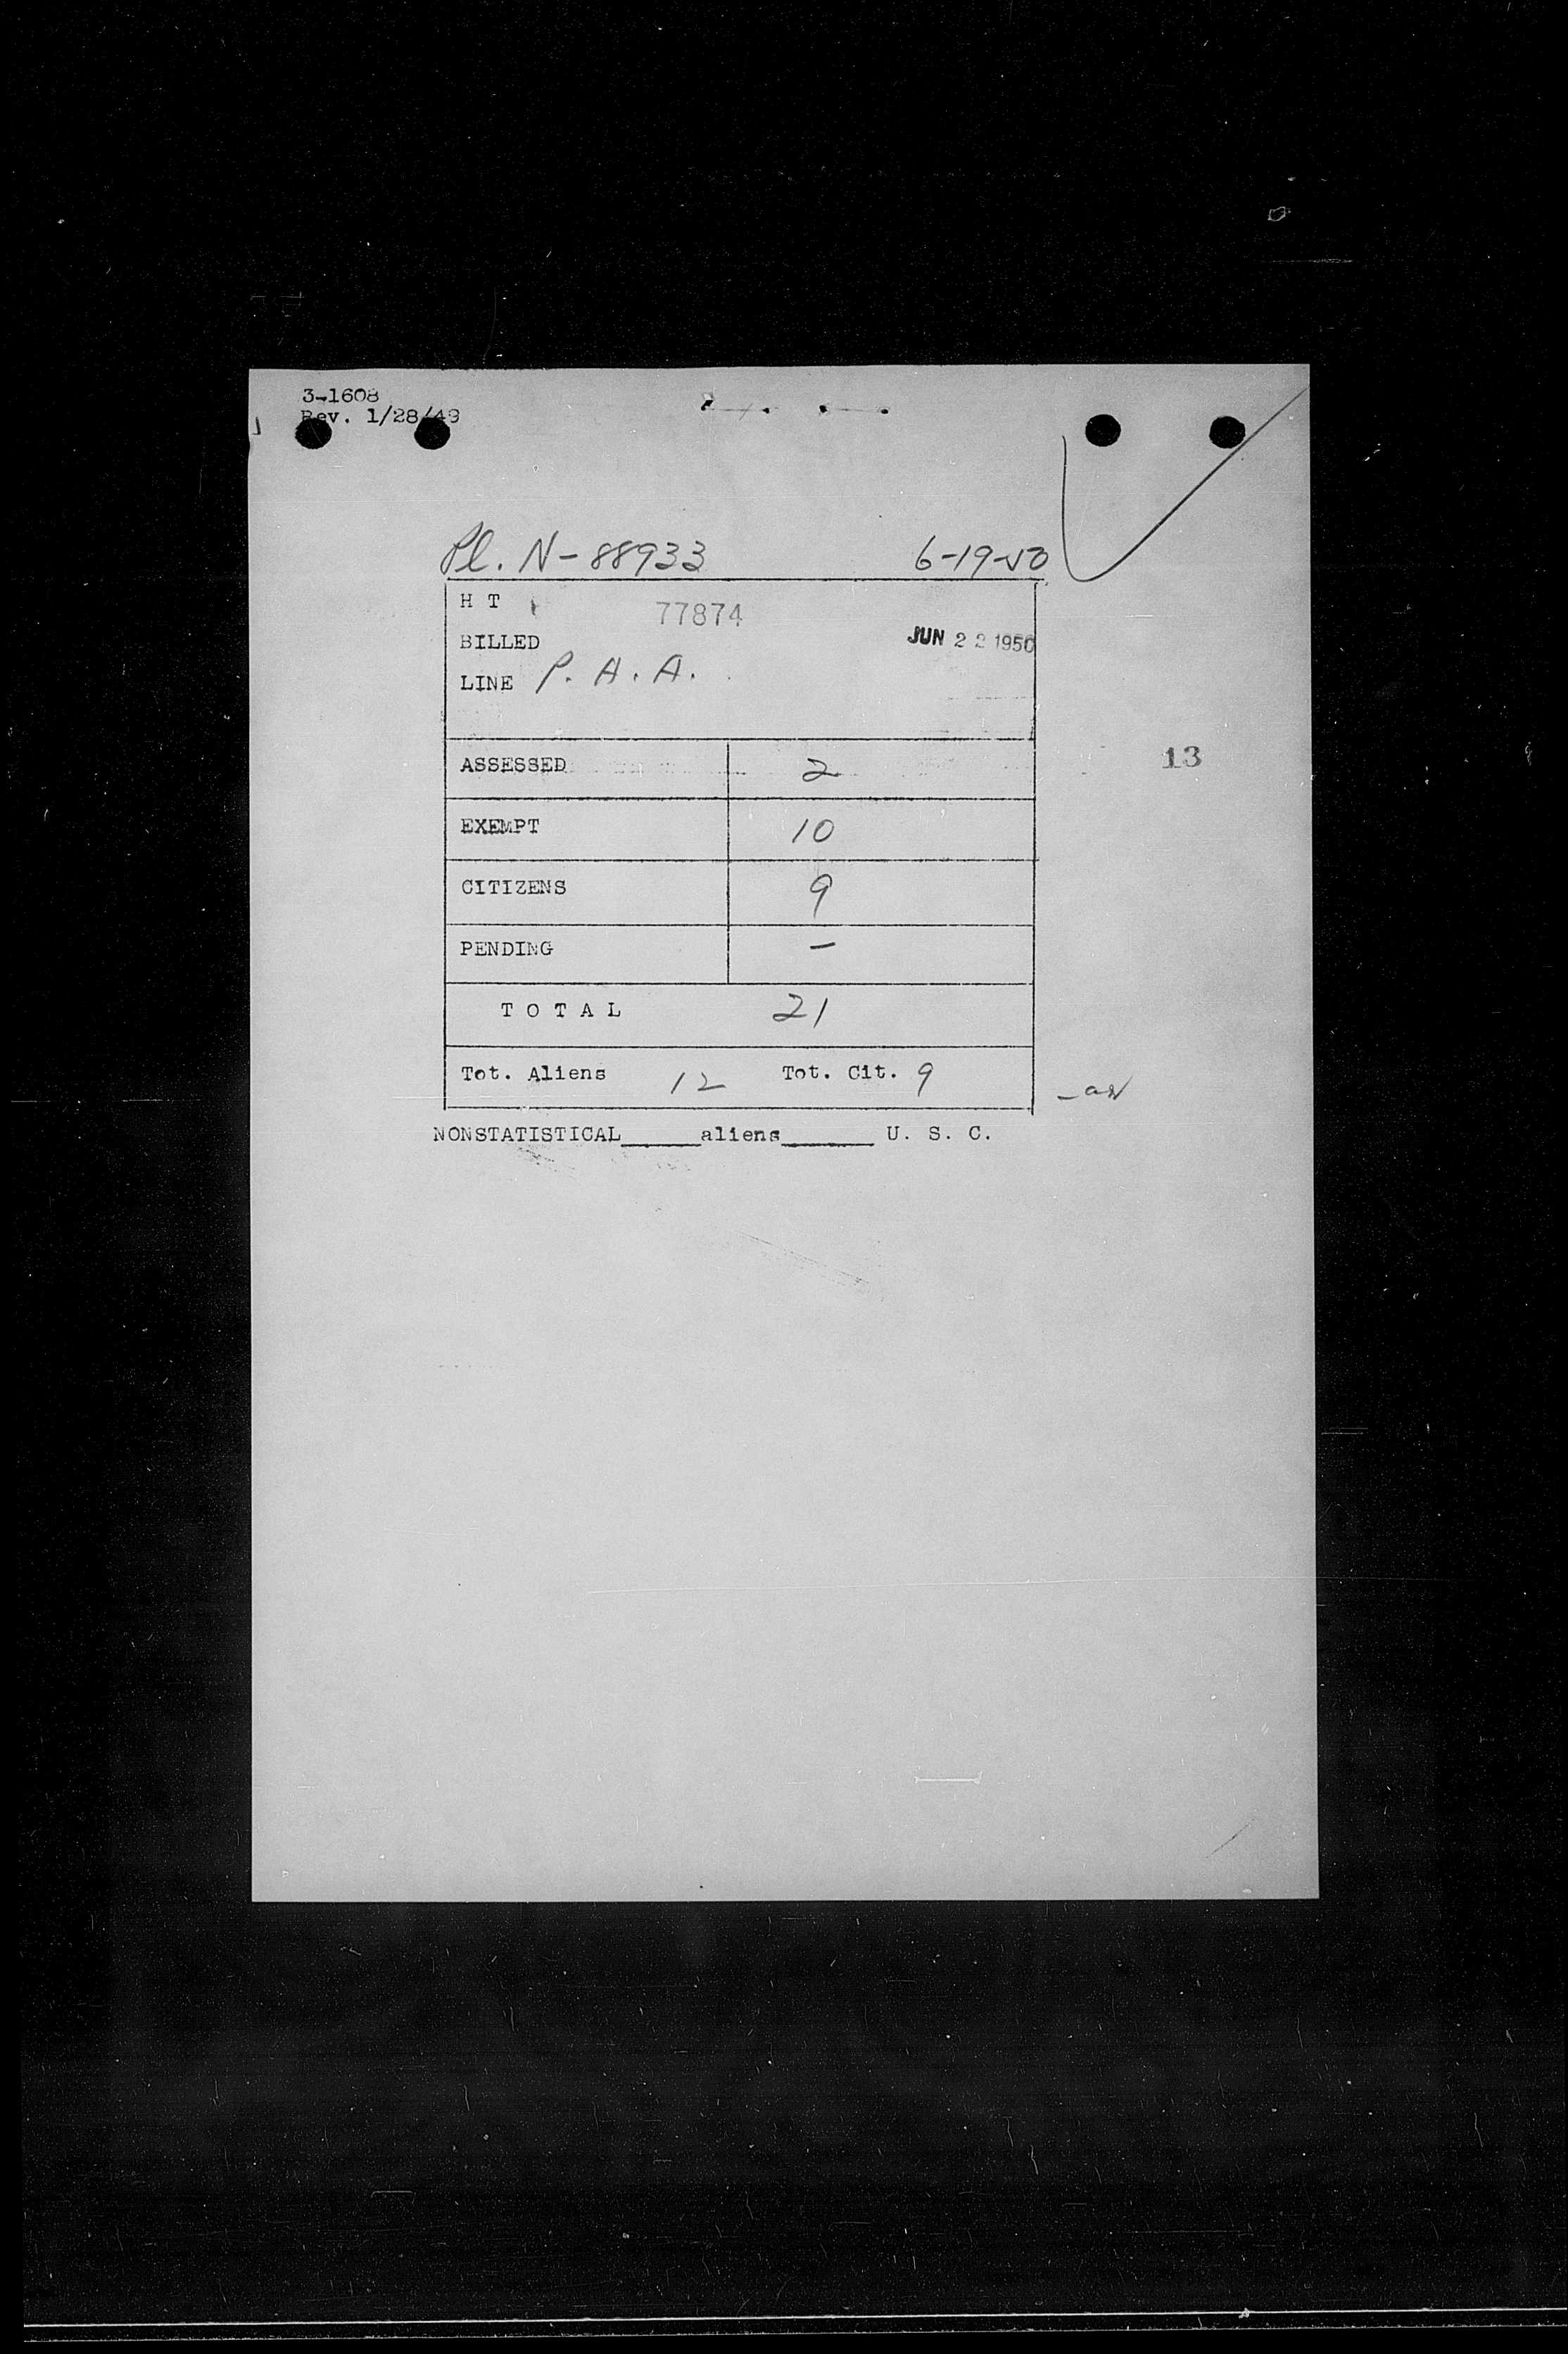 3-1608
Rev. 1/28/49
Pl. N-88933 6-19-50
H T 77874
BILLED JUN 22 1950
LINE P. A. A.
ASSESSED 2
13
EXEMPT 10
CITIZENS 9
PENDING —
T O T A L 21
Tot. Aliens 12 Tot. Cit. 9
NONSTATISTICAL______aliens_______ U. S. C.